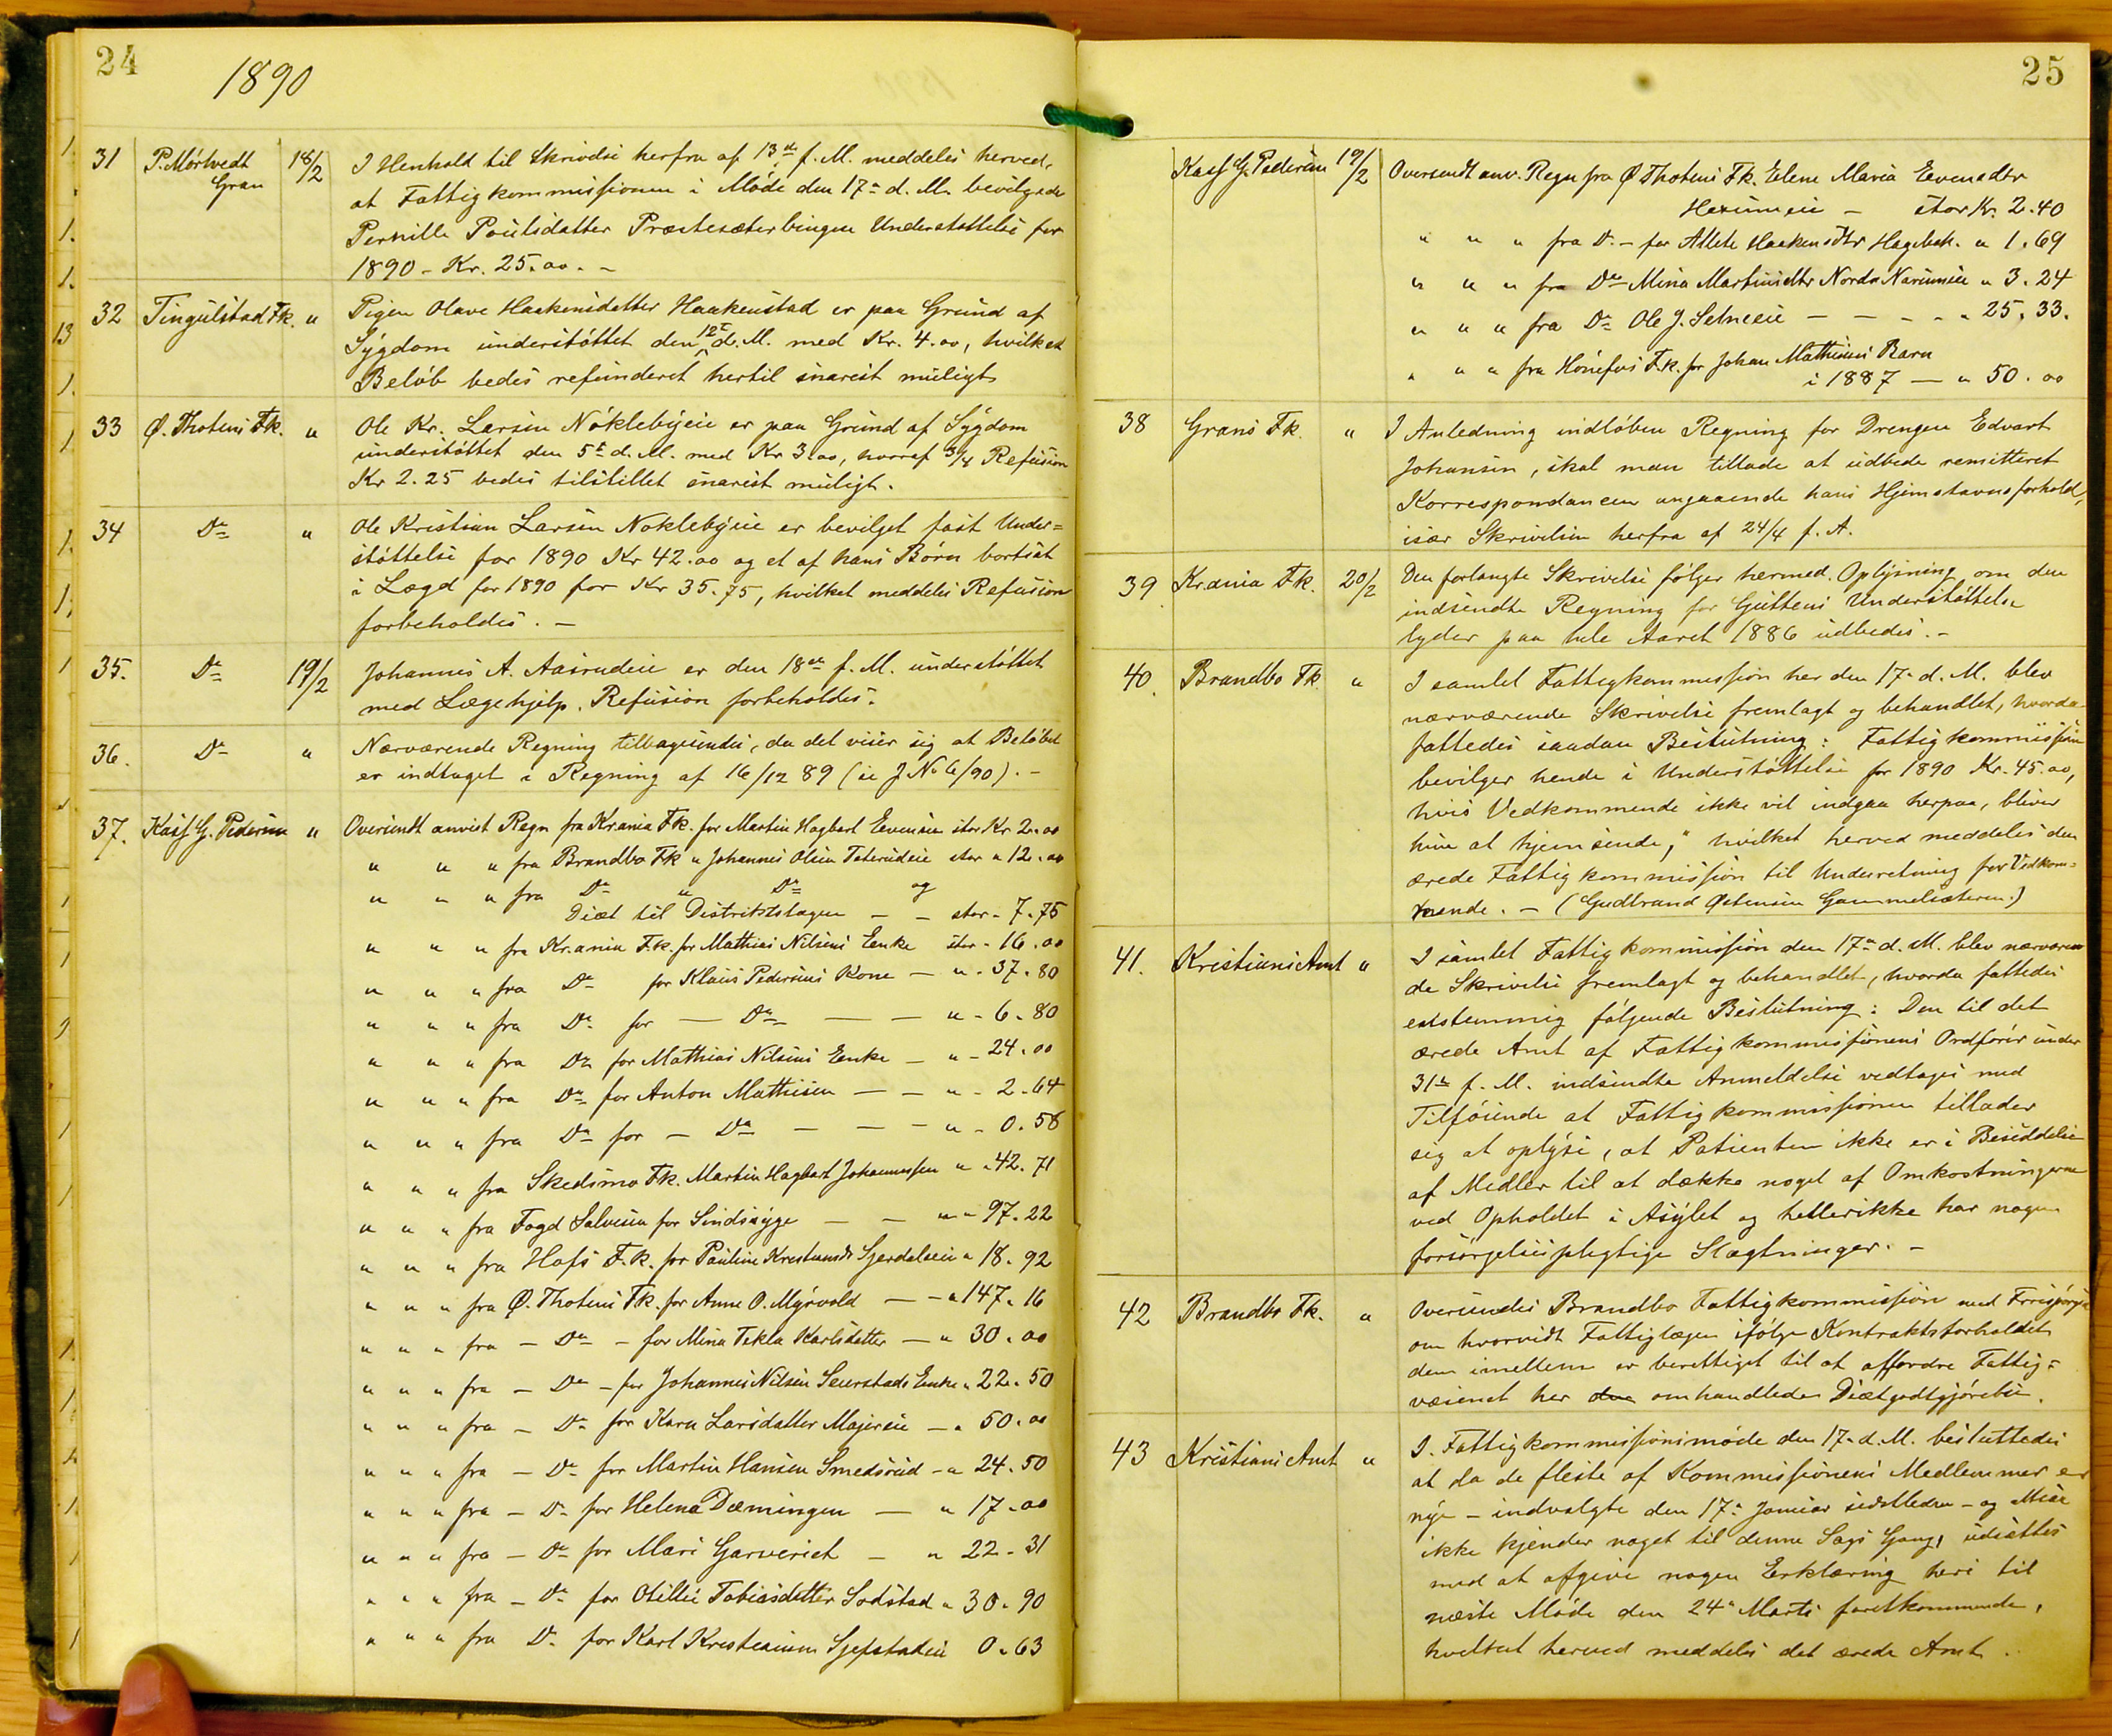 24
1890
31 P. Mörtvedt Gran 18/2 I Henhold til Skrivelse herfra af 13de f. M. meddeles herved,
at Fattigkommissionen i Möde den 17- d. M. bevilgede
Pernille Poulsdatter Præstesæterbingen Understöttelse for
1890 - Kr. 25.00. -
32 Tingelstad Fk. " Pigen Olave Haakensdatter Haakenstad er paa Grund af
Sygdom understöttet den 12te d. M. med Kr. 4.00, hvilket
Belöb bedes refunderet hertil snarest muligt
33 Ø. Thotens Fk. " Ole Kr. Larsen Nöklebyeie er paa Grund af Sygdom
understöttet den 5te d. M. med Kr 3.00, hvoraf 3/4 Refusion
Kr 2.25 bedes tilstillet snarest muligt.
34 Do " Ole Kristian Larsen Noklebyeie er bevilget fast Under=
stöttelse for 1890 Kr 42.00 og et af hans Börn bortsat
i Lægd for 1890 for Kr 35.75, hvilket meddeles Refusion
forbeholdes. -
35. Do 19/2 Johannes A. Aasrudeie er den 18de f. M. understöttet
med Lægehjelp. Refusion forbeholdes.
36. Do " Nærværende Regning tilbagesendes, da det viser sig at Belöbet
er indtaget i Regning af 16/12 89 (se J No 6/90). -
37. Kass G. Pedersen " Oversendt anvist Regn fra Kr.ania Fk. for Martin Hagbart Evensen stor Kr 2.00
" " " fra Brandbo Fk " Johannes Olsen Taterudeie stor " 12.00
" " " fra Do " Do og
Diæt til Distriktslægen - - stor - 7.75
" " " fra Kr.ania Fk. for Mathias Nilsens Enke stor - 16.00
" " " fra Do for Klaus Pedersens Kone - " - 37.80
" " " fra Do for - Do - - " - 6.80
" " " fra Do for Mathias Nilsens Enke - " - 24.00
" " " fra Do for Anton Mathisen - - " - 2.64
" " " fra Do for - Do - - - " - 0.58
" " " fra Skedsmo Fk. Martin Hagbart Johannessen " " 42.71
" " " fra Fogd Salvesen for Sindssyge - - " " 97.22
" " " fra Hofs F.k. for Pauline Krestiansdr " 18.92
" " " fra Ø. Thotens Fk. for Anne O. Myrvold - - " 147.16
" " " fra - Do - for Mina Tekla Karlsdatter - " 30.00
" " " fra - Do - for Johannes Nilsen Seierstads Enke " 22.50
" " " fra - Do for Karen Larsdatter Majereie - " 50.00
" " " fra - Do for Martin Hansen Smedsrud - " 24.50
" " " fra - Do for Helena Dæmingen - " 17.00
" " " fra - Do for Mari Garveriet - " 22.31
" " " fra - Do for Otillie Tobiasdatter Sodstad " 30.90
" " " fra Do for Karl Kristiansen 0.63
25
Kass G. Pedersen 19/2 Oversendt anv. Regn fra Ø Thotens Fk. Elene Maria Evensdtr
Hexumeie - stor Kr. 2.40
" " " fra Do - for Allete Haakensdtr Hagebak. " 1.69
" " " fra Do Mina Martinsdtr Nordre Narumeie " 3.24
" " " fra Do Ole J. Selneeie - - - - " 25.33.
" " " fra Hönefos F.k. for Johan Mathisens Barn
i 1887 - " 50.00
38 Grans Fk. " I Anledning indlöben Regning for Drengen Edvart
Johansen, skal man tillade at udbede remitteret
Korrespondancen angaaende hans Hjemstavnsforhold,
især Skrivelsen herfra af 24/4 f. A.
39. Kr.ania Fk. 20/2 Den forlangte Skrivelse fölger hermed. Oplysning om den
indsendte Regning for Guttens Understöttelse
lyder paa hele Aaret 1886 udbedes. -
40. Brandbo Fk. " I samlet Fattigkommission her den 17- d. M. blev
nærværende Skrivelse fremlagt og behandlet, hvorda
fattedes saadan Beslutning: Fattigkommissionen
bevilger hende i Understöttelse for 1890 Kr. 45.00,
hvis Vedkommende ikke vil indgaa herpaa, bliver
hun at hjemsende," hvilket herved meddeles den
ærede Fattigkommission til Underretning for Vedkom=
mende. - (Gudbrand Østensen Gammelsæteren.)
41. Kristians Amt " I samlet Fattigkommission den 17- d. M. blev nærværen
de Skrivelse fremlagt og behandlet, hvorda fattedes
enstemmig fölgende Beslutning: Den til det
ærede Amt af Fattigkommissionens Ordförer under
31te f. M. indsendte Anmeldelse vedtages med
Tilföiende at Fattigkommissionen tillader
sig at oplyse, at Patienten ikke er i Besiddelse
af Midler til at dække noget af Omkostningerne
ved Opholdet i Asylet og hellerikke har nogen
forsörgelsespligtige Slægtninger. -
42 Brandbo Fk. " Oversendes Brandbo Fattigkommission med Forespörgsel
om hvorvidt Fattiglægen ifölge Kontraktsforholdet
dem imellem er berettiget til at affordre Fattig=
væsenet her den omhandlede Diætgodtgjörelse.
43 Kristians Amt " I Fattigkommissionsmöde den 17- d. M. besluttedes
at da de fleste af Kommissionens Medlemmer er
nye - indvalgte den 17- Januar sidstleden - og
ikke kjender noget til denne Sags Gang, udsættes
med at afgive nogen Erklæring heri til
næste Möde den 24- Marts förstkommende,
hvilket herved meddeles det ærede Amt.